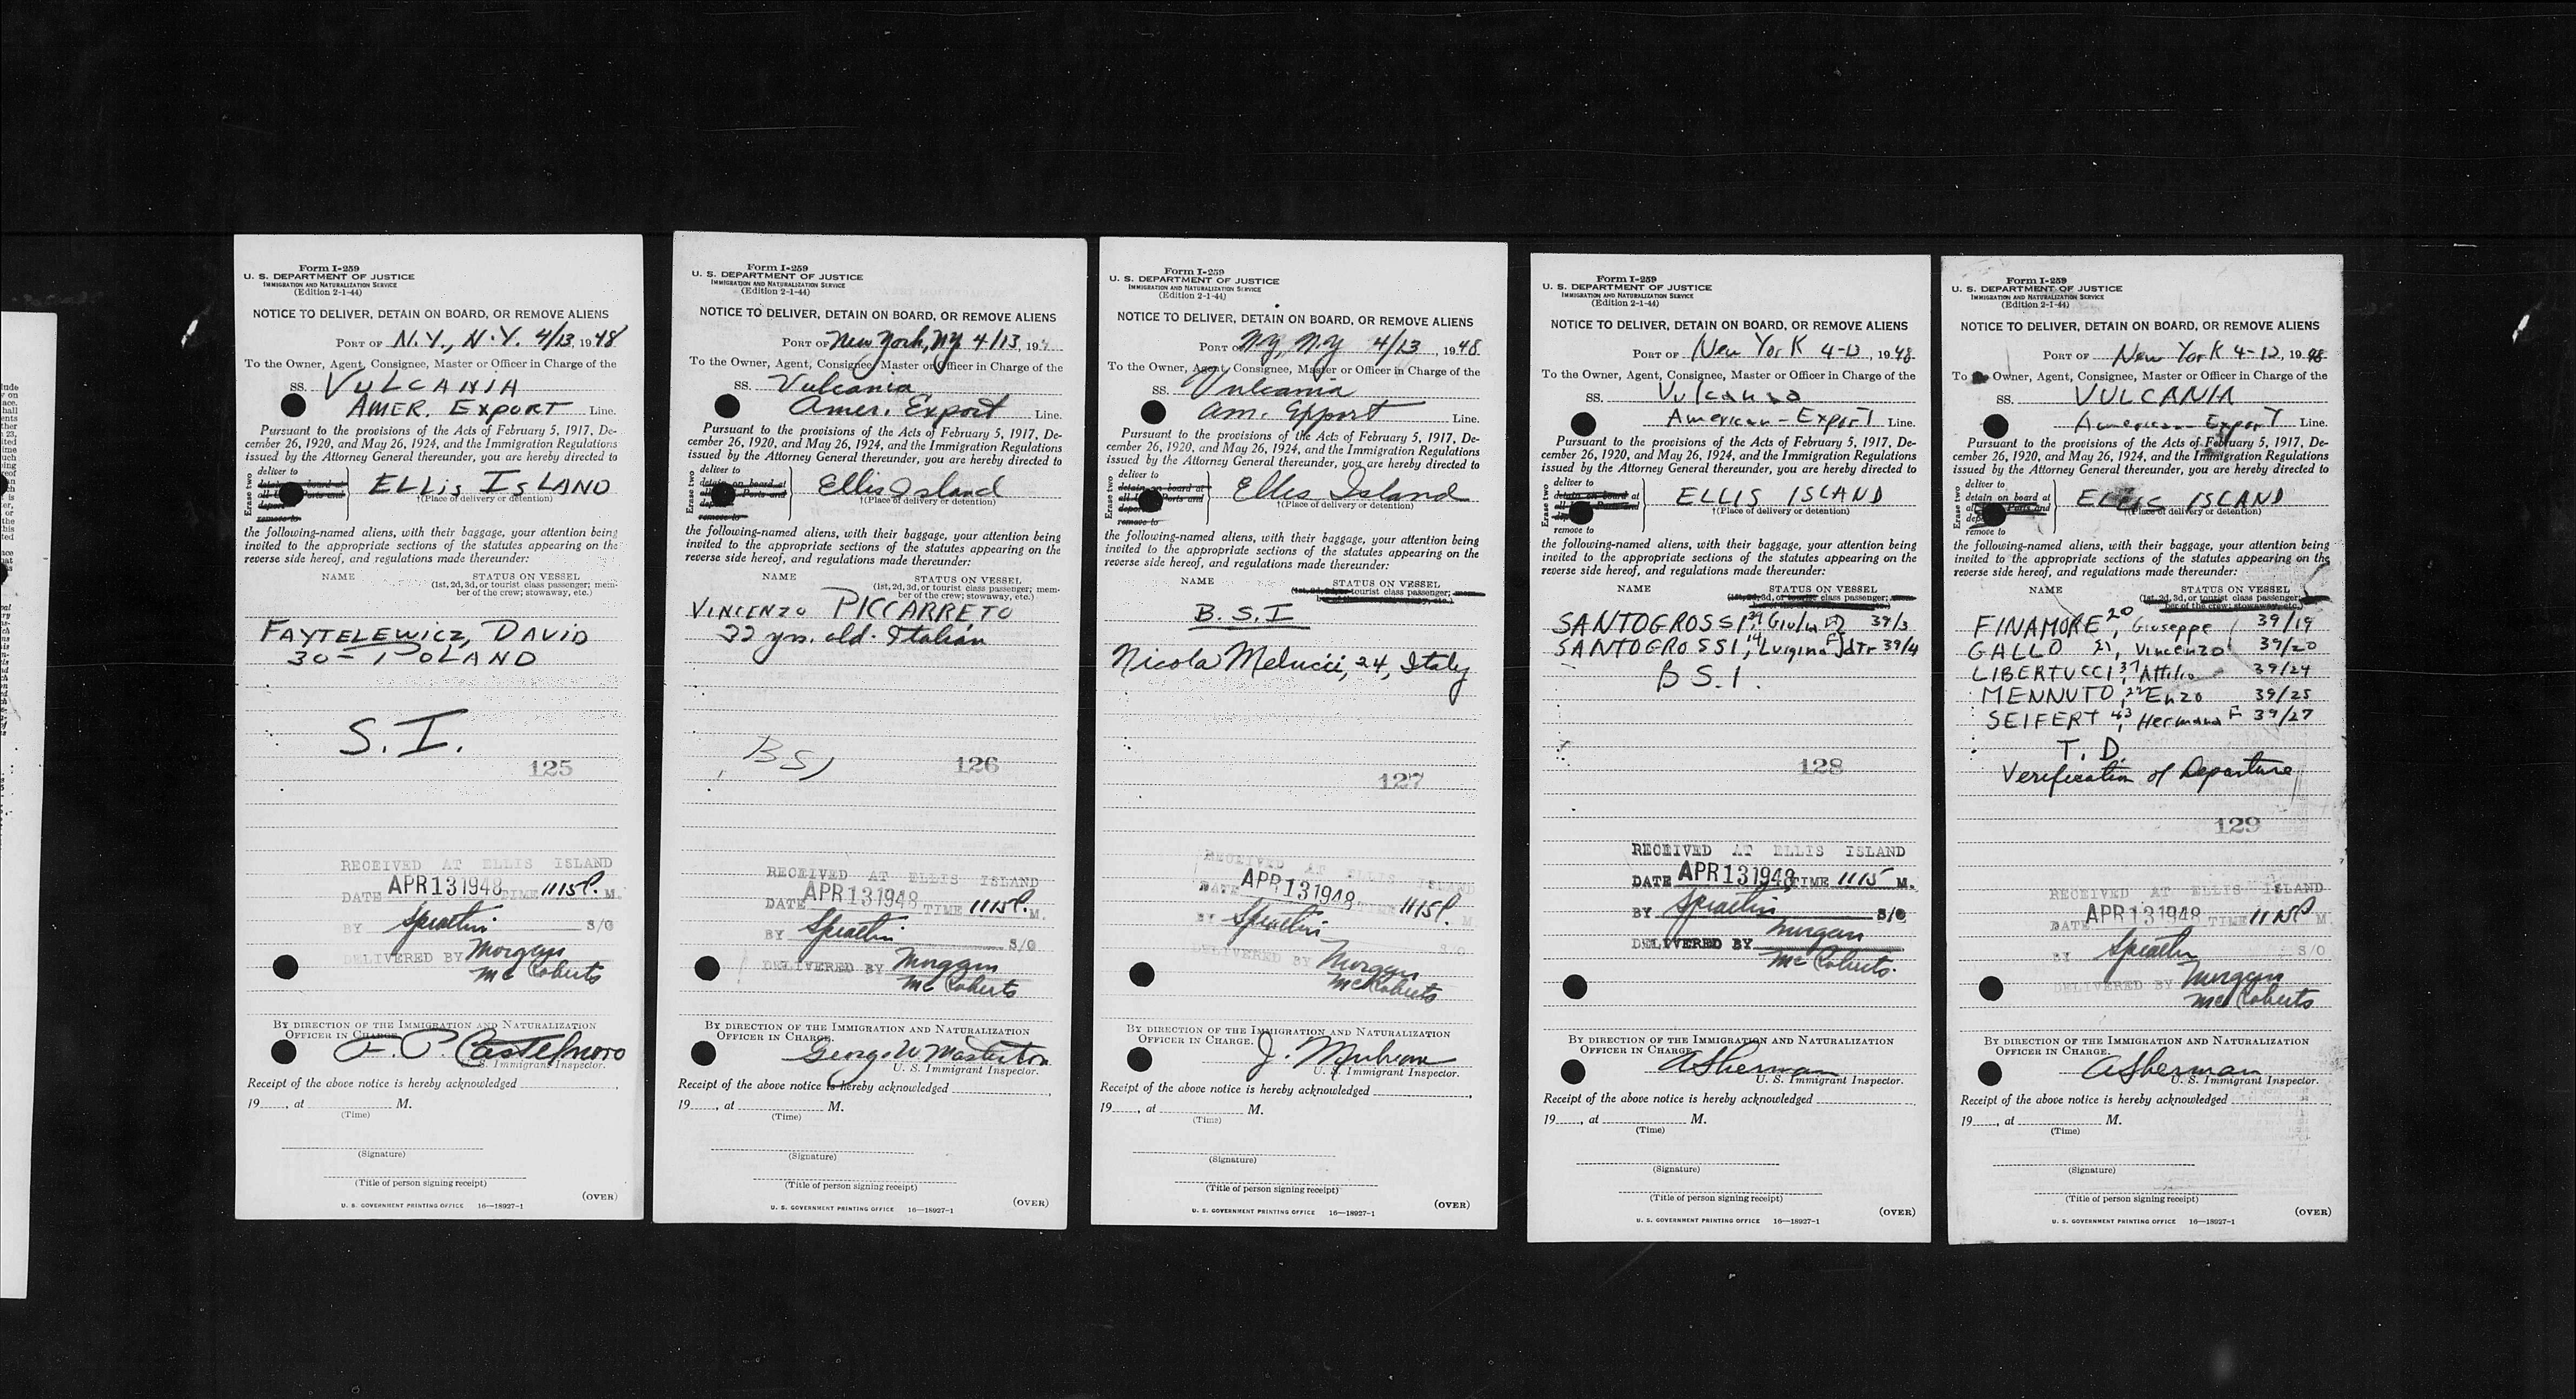 Form I-259
U. S. DEPARTMENT OF JUSTICE
IMMIGRATION AND NATURALIZATION SERVICE
(Edition 2-1-44)
NOTICE TO DELIVER, DETAIN ON BOARD, OR REMOVE ALIENS
PORT OF N.Y., N.Y. 4/13, 1948
To the Owner, Agent, Consignee, Master or Officer in Charge of the
SS. VULCANIA
AMER. EXPORT Line.
Pursuant to the provisions of the Acts of February 5, 1917, De-
cember 26, 1920, and May 26, 1924, and the Immigration Regulations
issued by the Attorney General thereunder, you are hereby directed to
Erase two
deliver to
detain on board at
remove to
ELLIS ISLAND
†(Place of delivery or detention)
the following-named aliens, with their baggage, your attention being
invited to the appropriate sections of the statutes appearing on the
reverse side hereof, and regulations made thereunder:
NAME STATUS ON VESSEL
(1st, 2d, 3d, or tourist class passenger; mem-
ber of the crew; stowaway, etc.)
FAYTELEWICZ, DAVID
30 - POLAND
S.I.
125
RECEIVED AT ELLIS ISLAND
DATE APR 13 1948 TIME 1115 P. M.
BY S/O
DELIVERED BY Morgan
McRoberts
BY DIRECTION OF THE IMMIGRATION AND NATURALIZATION
OFFICER IN CHARGE.
U. S. Immigrant Inspector.
Receipt of the above notice is hereby acknowledged
19, at M.
(Time)
(Signature)
(Title of person signing receipt)
(OVER)
U. S. GOVERNMENT PRINTING OFFICE 16—18927-1
Form I-259
U. S. DEPARTMENT OF JUSTICE
IMMIGRATION AND NATURALIZATION SERVICE
(Edition 2-1-44)
NOTICE TO DELIVER, DETAIN ON BOARD, OR REMOVE ALIENS
PORT OF New York, NY 4/13, 19
To the Owner, Agent, Consignee, Master or Officer in Charge of the
SS. Vulcania
Amer. Export Line.
Pursuant to the provisions of the Acts of February 5, 1917, De-
cember 26, 1920, and May 26, 1924, and the Immigration Regulations
issued by the Attorney General thereunder, you are hereby directed to
Erase two
deliver to
detain on board at
remove to
Ellis Island
†(Place of delivery or detention)
the following-named aliens, with their baggage, your attention being
invited to the appropriate sections of the statutes appearing on the
reverse side hereof, and regulations made thereunder:
NAME STATUS ON VESSEL
(1st, 2d, 3d, or tourist class passenger; mem-
ber of the crew; stowaway, etc.)
VINCENZO PICCARRETO
22 yrs. old. Italian
BSI
126
RECEIVED AT ELLIS ISLAND
DATE APR 13 1948 TIME 1115 P. M.
BY S/O
DELIVERED BY Morgan
McRoberts
BY DIRECTION OF THE IMMIGRATION AND NATURALIZATION
OFFICER IN CHARGE.
George W Masterton
U. S. Immigrant Inspector.
Receipt of the above notice is hereby acknowledged
19, at M.
(Time)
(Signature)
(Title of person signing receipt)
(OVER)
U. S. GOVERNMENT PRINTING OFFICE 16—18927-1
Form I-259
U. S. DEPARTMENT OF JUSTICE
IMMIGRATION AND NATURALIZATION SERVICE
(Edition 2-1-44)
NOTICE TO DELIVER, DETAIN ON BOARD, OR REMOVE ALIENS
PORT OF N.Y, N.Y 4/13, 1948
To the Owner, Agent, Consignee, Master or Officer in Charge of the
SS. Vulcania
Am. Export Line.
Pursuant to the provisions of the Acts of February 5, 1917, De-
cember 26, 1920, and May 26, 1924, and the Immigration Regulations
issued by the Attorney General thereunder, you are hereby directed to
Erase two
deliver to
detain on board at
remove to
Ellis Island
†(Place of delivery or detention)
the following-named aliens, with their baggage, your attention being
invited to the appropriate sections of the statutes appearing on the
reverse side hereof, and regulations made thereunder:
NAME STATUS ON VESSEL
(1st, 2d, 3d, or tourist class passenger; mem-
ber of the crew; stowaway, etc.)
B.S.I
Nicola Melucci, 24, Italy
127
RECEIVED AT ELLIS ISLAND
DATE APR 13 1948 TIME 1115 P. M.
BY S/O
DELIVERED BY Morgan
McRoberts
BY DIRECTION OF THE IMMIGRATION AND NATURALIZATION
OFFICER IN CHARGE.
U. S. Immigrant Inspector.
Receipt of the above notice is hereby acknowledged
19, at M.
(Time)
(Signature)
(Title of person signing receipt)
(OVER)
U. S. GOVERNMENT PRINTING OFFICE 16—18927-1
Form I-259
U. S. DEPARTMENT OF JUSTICE
IMMIGRATION AND NATURALIZATION SERVICE
(Edition 2-1-44)
NOTICE TO DELIVER, DETAIN ON BOARD, OR REMOVE ALIENS
PORT OF New York 4-13, 1948
To the Owner, Agent, Consignee, Master or Officer in Charge of the
SS. Vulcania
American-Export Line.
Pursuant to the provisions of the Acts of February 5, 1917, De-
cember 26, 1920, and May 26, 1924, and the Immigration Regulations
issued by the Attorney General thereunder, you are hereby directed to
Erase two
deliver to
detain on board at
remove to
ELLIS ISLAND
†(Place of delivery or detention)
the following-named aliens, with their baggage, your attention being
invited to the appropriate sections of the statutes appearing on the
reverse side hereof, and regulations made thereunder:
NAME STATUS ON VESSEL
(1st, 2d, 3d, or tourist class passenger; mem-
SANTOGROSSI, 39 39/3
SANTOGROSSI, 14 Luigina F dtr 39/4
B S.I.
128
RECEIVED AT ELLIS ISLAND
DATE APR 13 1948 TIME 1115 M.
BY S/O
DELIVERED BY Morgan
McRoberts.
BY DIRECTION OF THE IMMIGRATION AND NATURALIZATION
OFFICER IN CHARGE.
ASherman
U. S. Immigrant Inspector.
Receipt of the above notice is hereby acknowledged
19, at M.
(Time)
(Signature)
(Title of person signing receipt)
(OVER)
U. S. GOVERNMENT PRINTING OFFICE 16—18927-1
Form I-259
U. S. DEPARTMENT OF JUSTICE
IMMIGRATION AND NATURALIZATION SERVICE
(Edition 2-1-44)
NOTICE TO DELIVER, DETAIN ON BOARD, OR REMOVE ALIENS
PORT OF New York 4-13, 1948
To Owner, Agent, Consignee, Master or Officer in Charge of the
SS. VULCANIA
American-Export Line.
Pursuant to the provisions of the Acts of February 5, 1917, De-
cember 26, 1920, and May 26, 1924, and the Immigration Regulations
issued by the Attorney General thereunder, you are hereby directed to
Erase two
deliver to
detain on board at
remove to
ELLIS ISLAND
†(Place of delivery or detention)
the following-named aliens, with their baggage, your attention being
invited to the appropriate sections of the statutes appearing on the
reverse side hereof, and regulations made thereunder:
NAME STATUS ON VESSEL
(1st, 2d, 3d, or tourist class passenger;
ber of the crew; stowaway, etc.)
FINAMORE 20, Giuseppe 39/19
GALLO 21, Vincenzo 39/20
LIBERTUCCI, 37 Attilio 39/24
MENNUTO, 22 Enzo 39/25
SEIFERT 43, Hermana F 39/27
T. D.
Verification of Departure
129
RECEIVED AT ELLIS ISLAND
DATE APR 13 1948 TIME 1115 P M
BY S/O
DELIVERED BY Morgan
McRoberts
BY DIRECTION OF THE IMMIGRATION AND NATURALIZATION
OFFICER IN CHARGE.
ASherman
U. S. Immigrant Inspector.
Receipt of the above notice is hereby acknowledged
19, at M.
(Time)
(Signature)
(Title of person signing receipt)
(OVER)
U. S. GOVERNMENT PRINTING OFFICE 16—18927-1